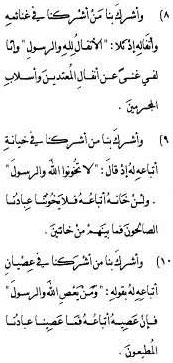 (٨) وأشرك بنا من أشركنا في غنائمه
وأنفاله إذ كلا: "الأنفال لله والرسول" وإنا
لفي غنى عن أنفال المعتدين وأسلاب
المجرمين .
(٩) وأشرك بنا من أشركنا في خيانة
أتباعه له إذ قال: "لا تخونوا الله والرسول"
. ولئن خانه أتباعه فلا يخوننا عبادنا
الصالحون فما بينهم من خائنين .
(١٠) وأشرك بنا من أشركنا في عصيان
أتباعه له بقوله: "ومن يعص الله والرسول"
فإن عصيه أتباعه فما عصينا عبادنا
المطيعون.